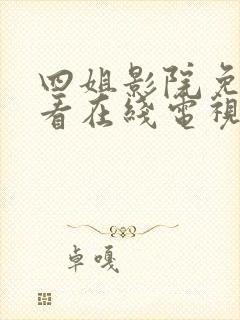 四姐影院免
看在线電視
卓嘎